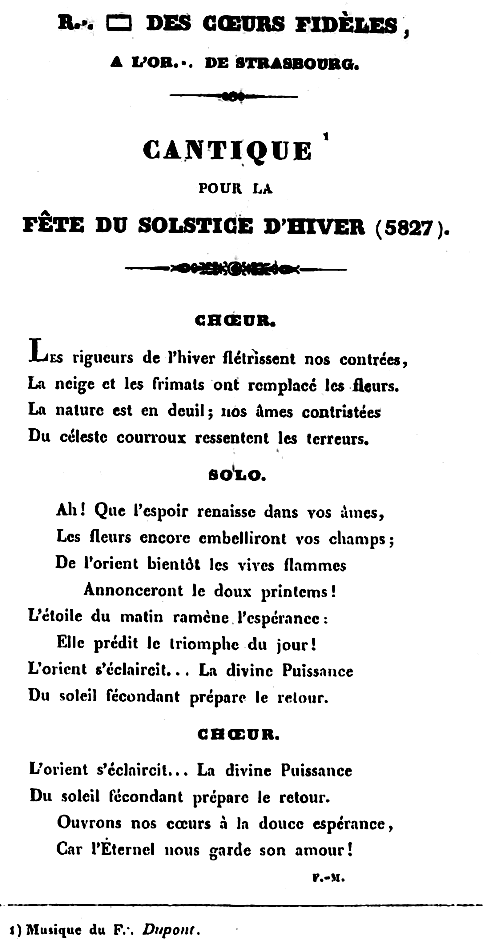 R.·. ▭ DES CŒURS FIDÈLES,
A L'OR.·. DE STRASBOURG.
CANTIQUE ¹
POUR LA
FÊTE DU SOLSTICE D'HIVER (5827).
CHŒUR.
LES rigueurs de l'hiver flétrissent nos contrées,
La neige et les frimats ont remplacé les fleurs.
La nature est en deuil; nos âmes contristées
Du céleste courroux ressentent les terreurs.
SOLO.
Ah! Que l'espoir renaisse dans vos âmes,
Les fleurs encore embelliront vos champs;
De l'orient bientôt les vives flammes
Annonceront le doux printems!
L'étoile du matin ramène l'espérance:
Elle prédit le triomphe du jour!
L'orient s'éclaircit... La divine Puissance
Du soleil fécondant prépare le retour.
CHŒUR.
L'orient s'éclaircit... La divine Puissance
Du soleil fécondant prépare le retour.
Ouvrons nos cœurs à la douce espérance,
Car l'Éternel nous garde son amour!
F.-M.
1) Musique du F.·. Dupont.